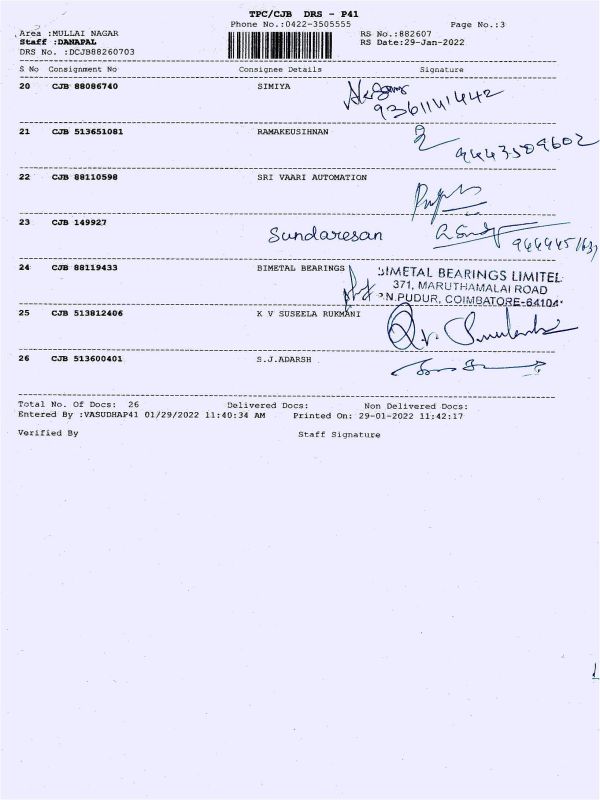 TPC/CJB DRS - P41
Phone No.:0422-3505555 Page No.:3
Area :MULLAI NAGAR RS No.:882607
Staff :DANAPAL RS Date:29-Jan-2022
DRS No. :DCJB88260703
S No Consignment No Consignee Details Signature
20 CJB 88086740 SIMIYA
9361141442
21 CJB 513651081 RAMAKEUSIHNAN
9443509602
22 CJB 88110598 SRI VAARI AUTOMATION
23 CJB 149927
Sundaresan
24 CJB 88119433 BIMETAL BEARINGS
BIMETAL BEARINGS LIMITED
371, MARUTHAMALAI ROAD
P.N.PUDUR, COIMBATORE-641041
25 CJB 513812406 K V SUSEELA RUKMANI
26 CJB 513600401 S.J.ADARSH
Total No. Of Docs: 26 Delivered Docs: Non Delivered Docs:
Entered By :VASUDHAP41 01/29/2022 11:40:34 AM Printed On: 29-01-2022 11:42:17
Verified By Staff Signature